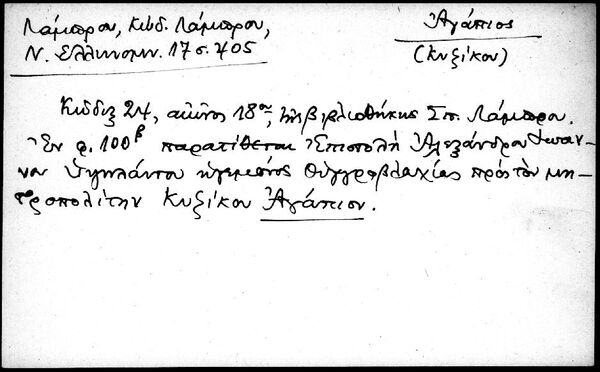 Λάμπρου, Κώδ. Λάμπρου,
Ν. Ἑλληνομν. 17 σ. 405
Ἀγάπιος
(Κυζίκου)
Κώδιξ 24, αἰῶνος 18ου, τῆς βιβλιοθήκης Σπ. Λάμπρου.
Ἐν φ. 100β παρατίθεται Ἐπιστολὴ Ἀλεξάνδρου Ἰωάν-
νου Ὑψηλάντου ἡγεμόνος Οὑγγροβλαχίας πρὸς τὸν μη-
τροπολίτην Κυζίκου Ἀγάπιον.